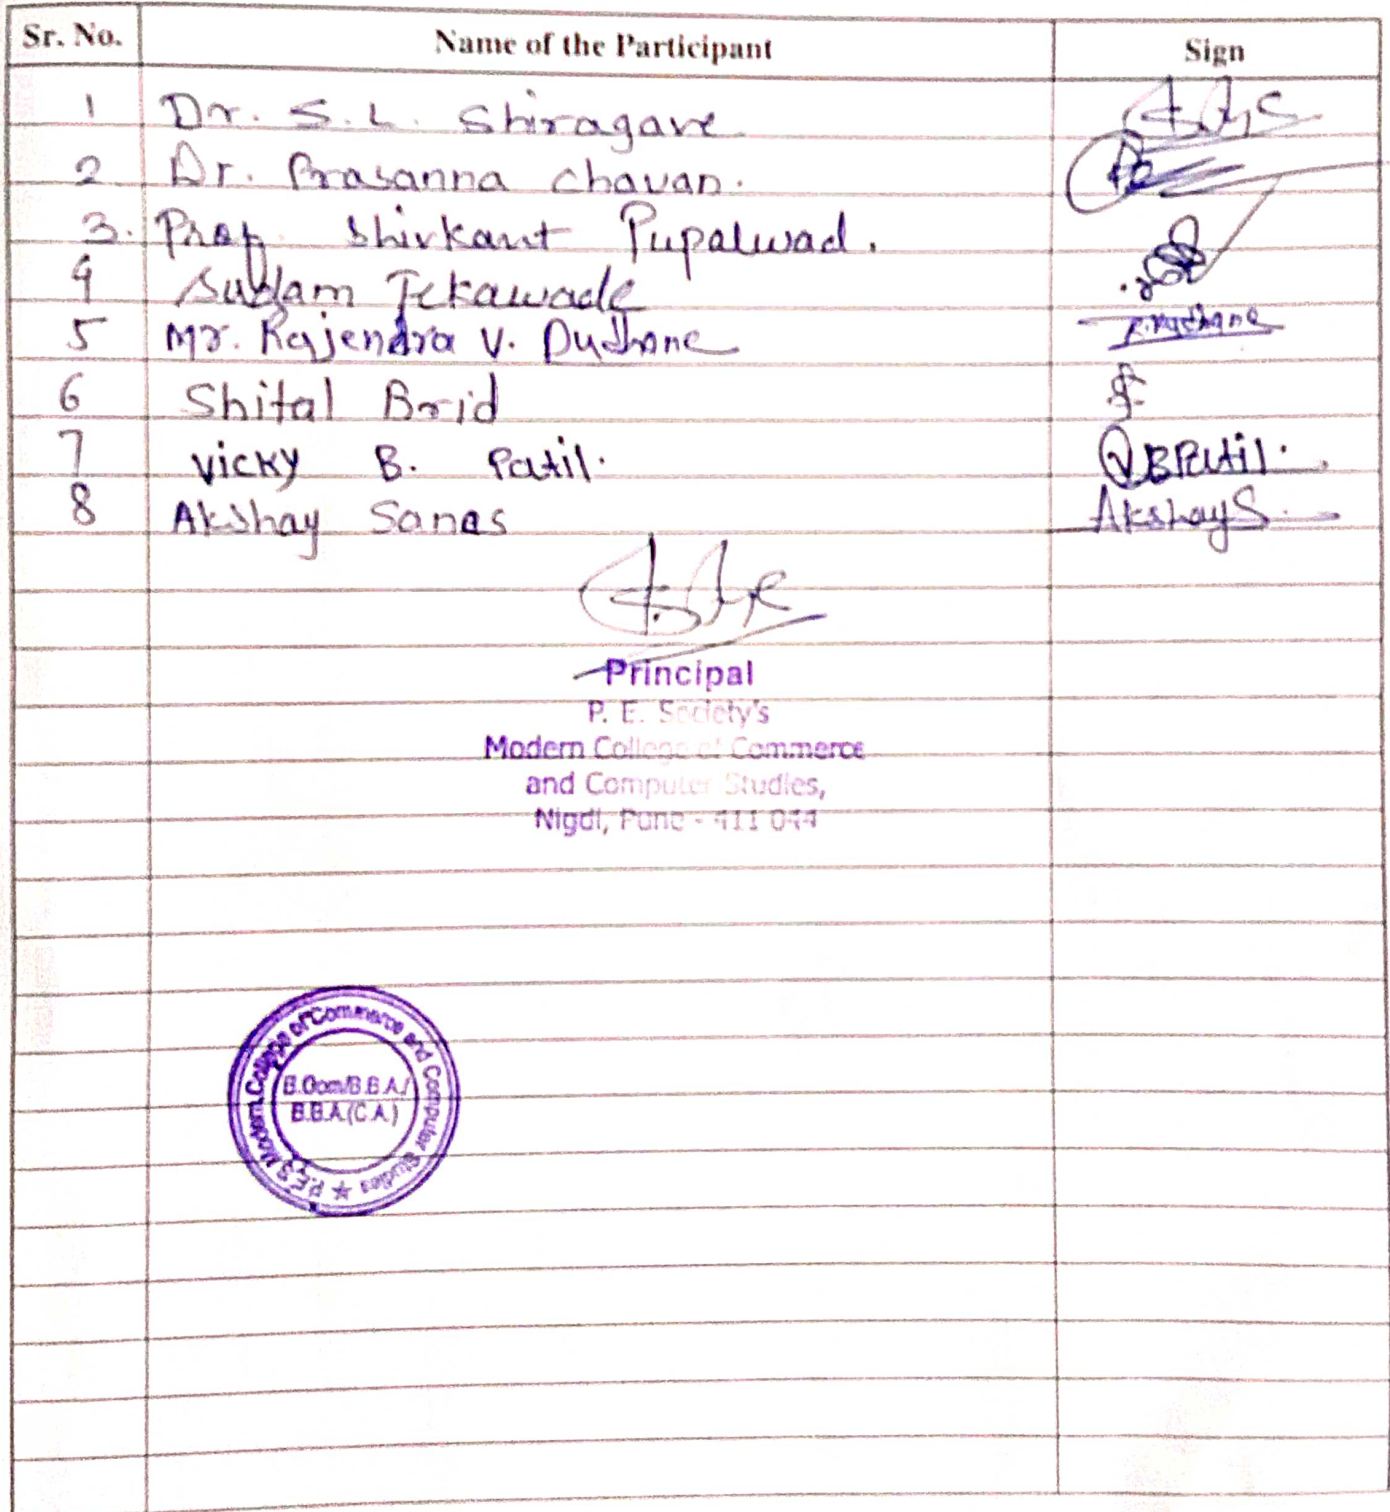 Sr. No. Name of the Participant Sign
1 Dr. S. L. Shiragave
2 Dr. Prasanna Chavan.
3. Prof. Shivkant Pupalwad.
4 Sudam Tekawade
5 Mr. Rajendra V. Dudhane R.Dudhane
6 Shital Brid
7 Vicky B. Patil. VBPatil.
8 Akshay Sanas AkshayS.
Principal
P. E. Society's
Modern College of Commerce
and Computer Studies,
Nigdi, Pune - 411 044
P.E.S. Modern College of Commerce and Computer Studies ★
B.Com/B.B.A./
B.B.A.(C.A.)